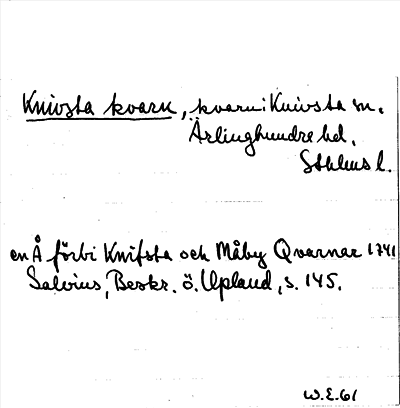 Knivsta kvarn, kvarn i Knivsta sn.
Ärlinghundra hd.
Sthlms l.
en Å förbi Knifsta och Måby Qvarnar 1741
Salvius, Beskr. ö. Upland, s. 145.
W.E. 61